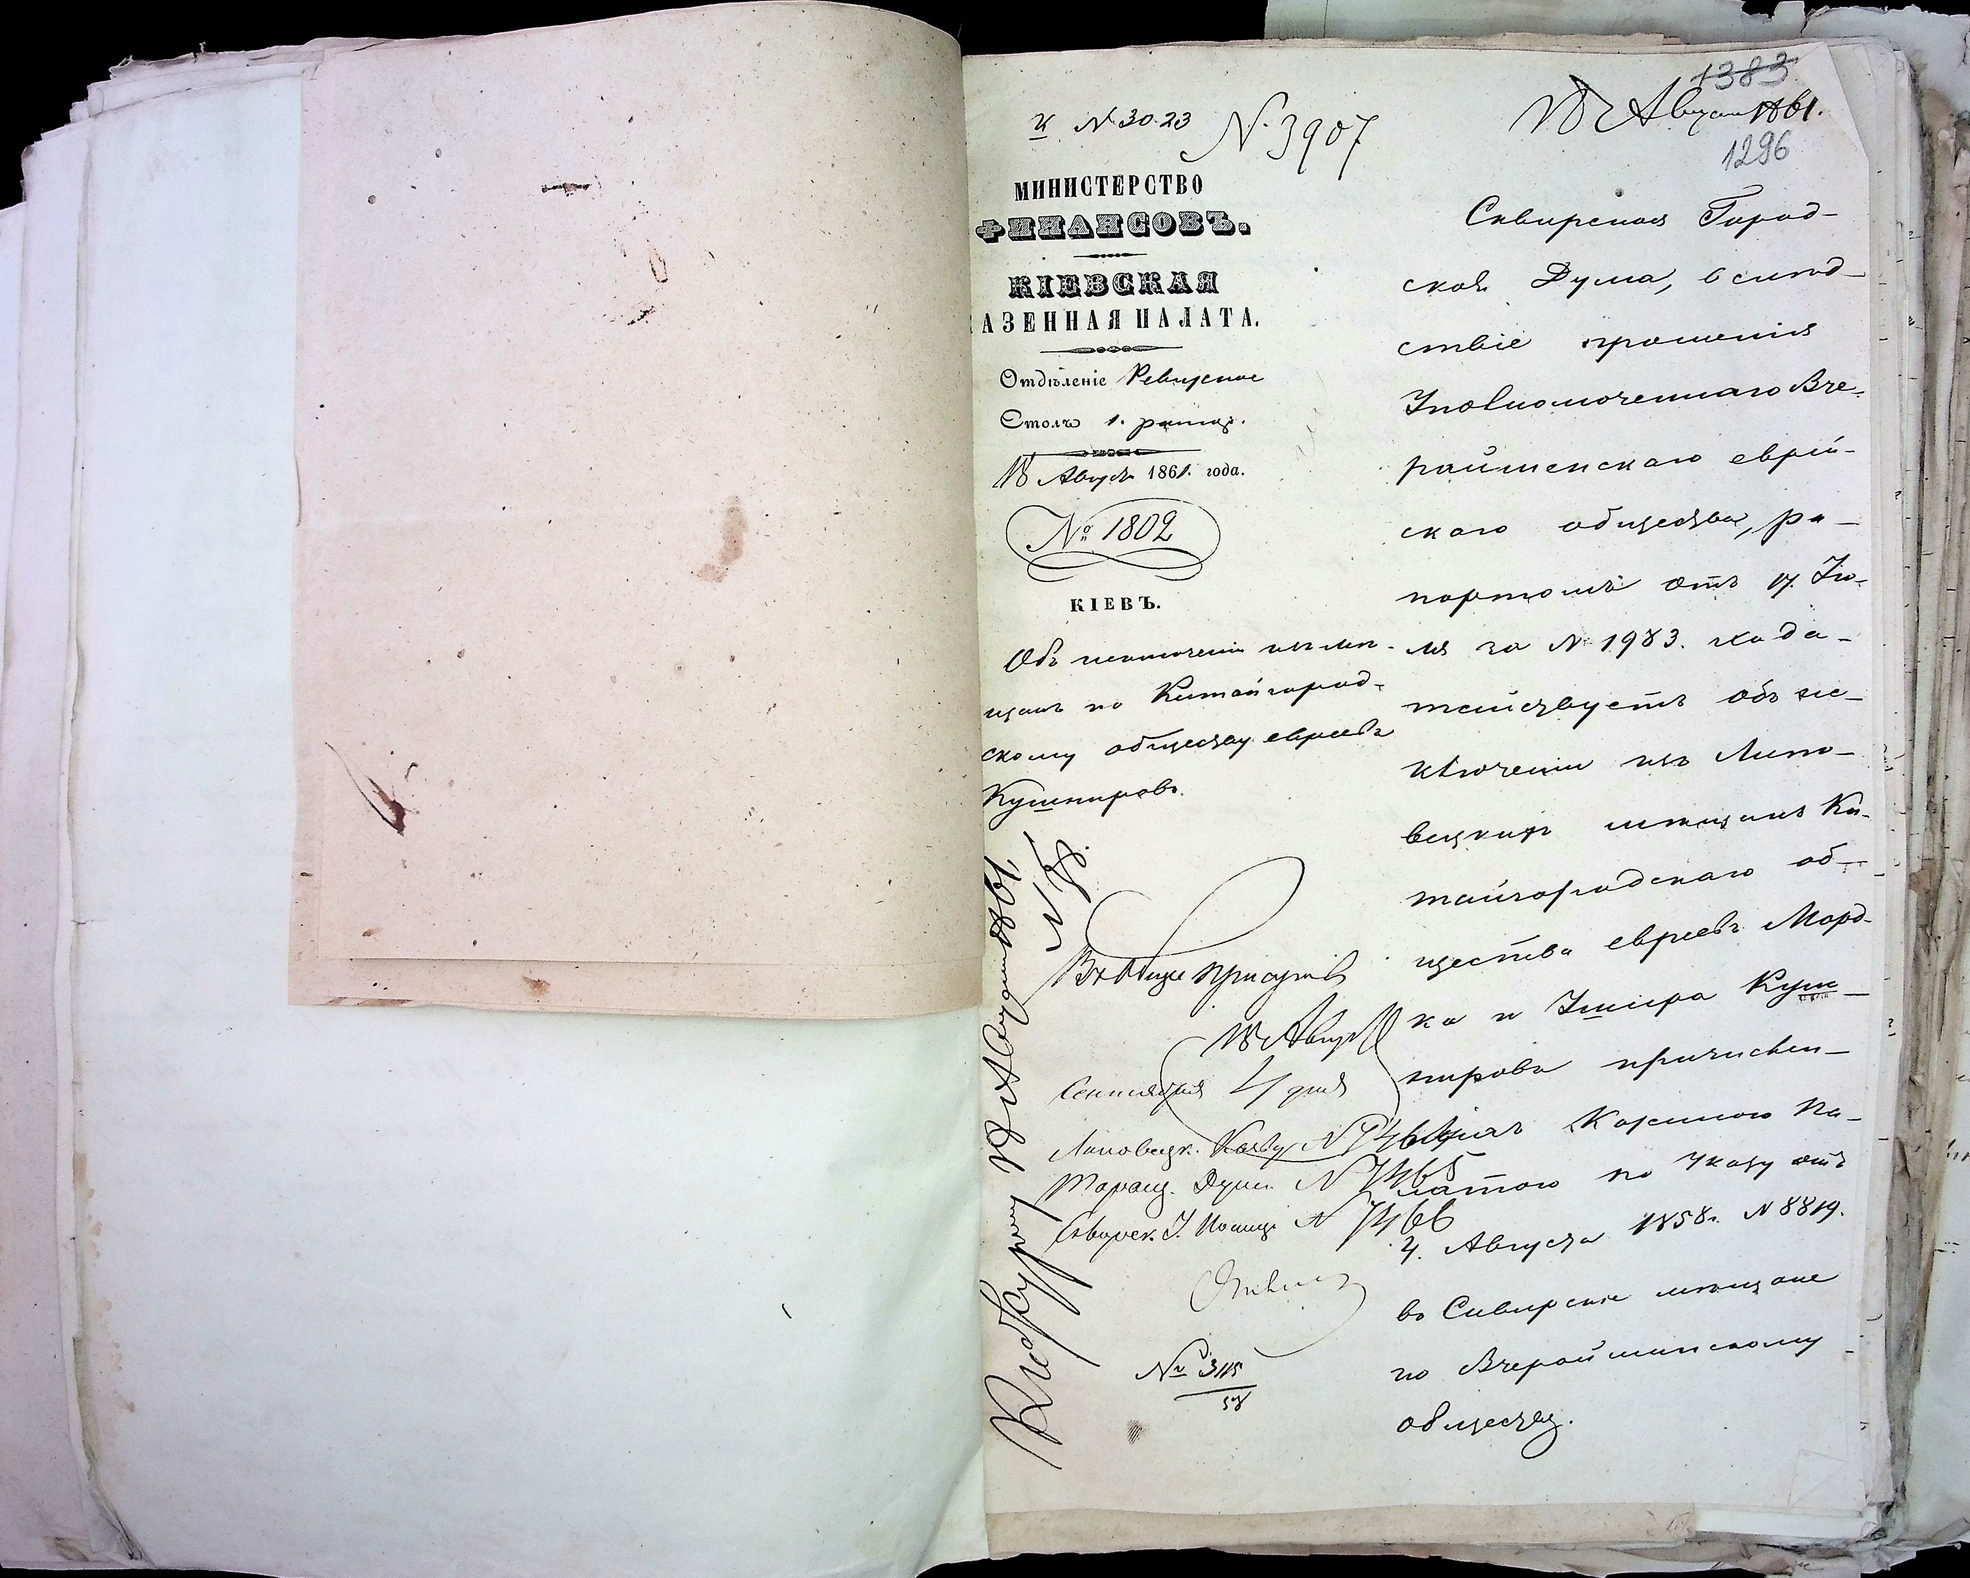 1383
к № 3023 № 3907
18 Августа 1861.
1296
МИНИСТЕРСТВО
ФИНАНСОВЪ.
КІЕВСКАЯ
АЗЕННАЯ ПАЛАТА.
Отдѣленіе Ревизское
Столъ 1.
18 Августа 1861. года.
№ 1802
КІЕВЪ.
Объ исключеніи изъ мѣ-
щанъ по Китайгород-
скому обществу евреевъ
Кушнировъ.
18 Августа 1861.
№ 8.
18 Августа
Сентября 4 дня
Липовецк.
Таращ. Думѣ № 7465
Сквирск. Г. Полиц № 7466
№ 3115
58
Сквирская Город-
ская Дума, вслѣд-
ствіе прошенія
Уполномоченнаго Вче-
райшенскаго еврей-
скаго общества, ра-
портомъ отъ 17. Ію-
ля за № 1983. хода-
тайствуетъ объ ис-
ключеніи изъ Липо-
вецкихъ мѣщанъ Ки-
тайгородскаго об-
щества евреевъ Морд-
ка и Ушера Куш-
нировъ причислен-
ныхъ Казенною Па-
латою по Указу отъ
4. Августа 1858 г. № 8819.
въ Сквирскіе мѣщане
по Вчерайшинскому
обществу.